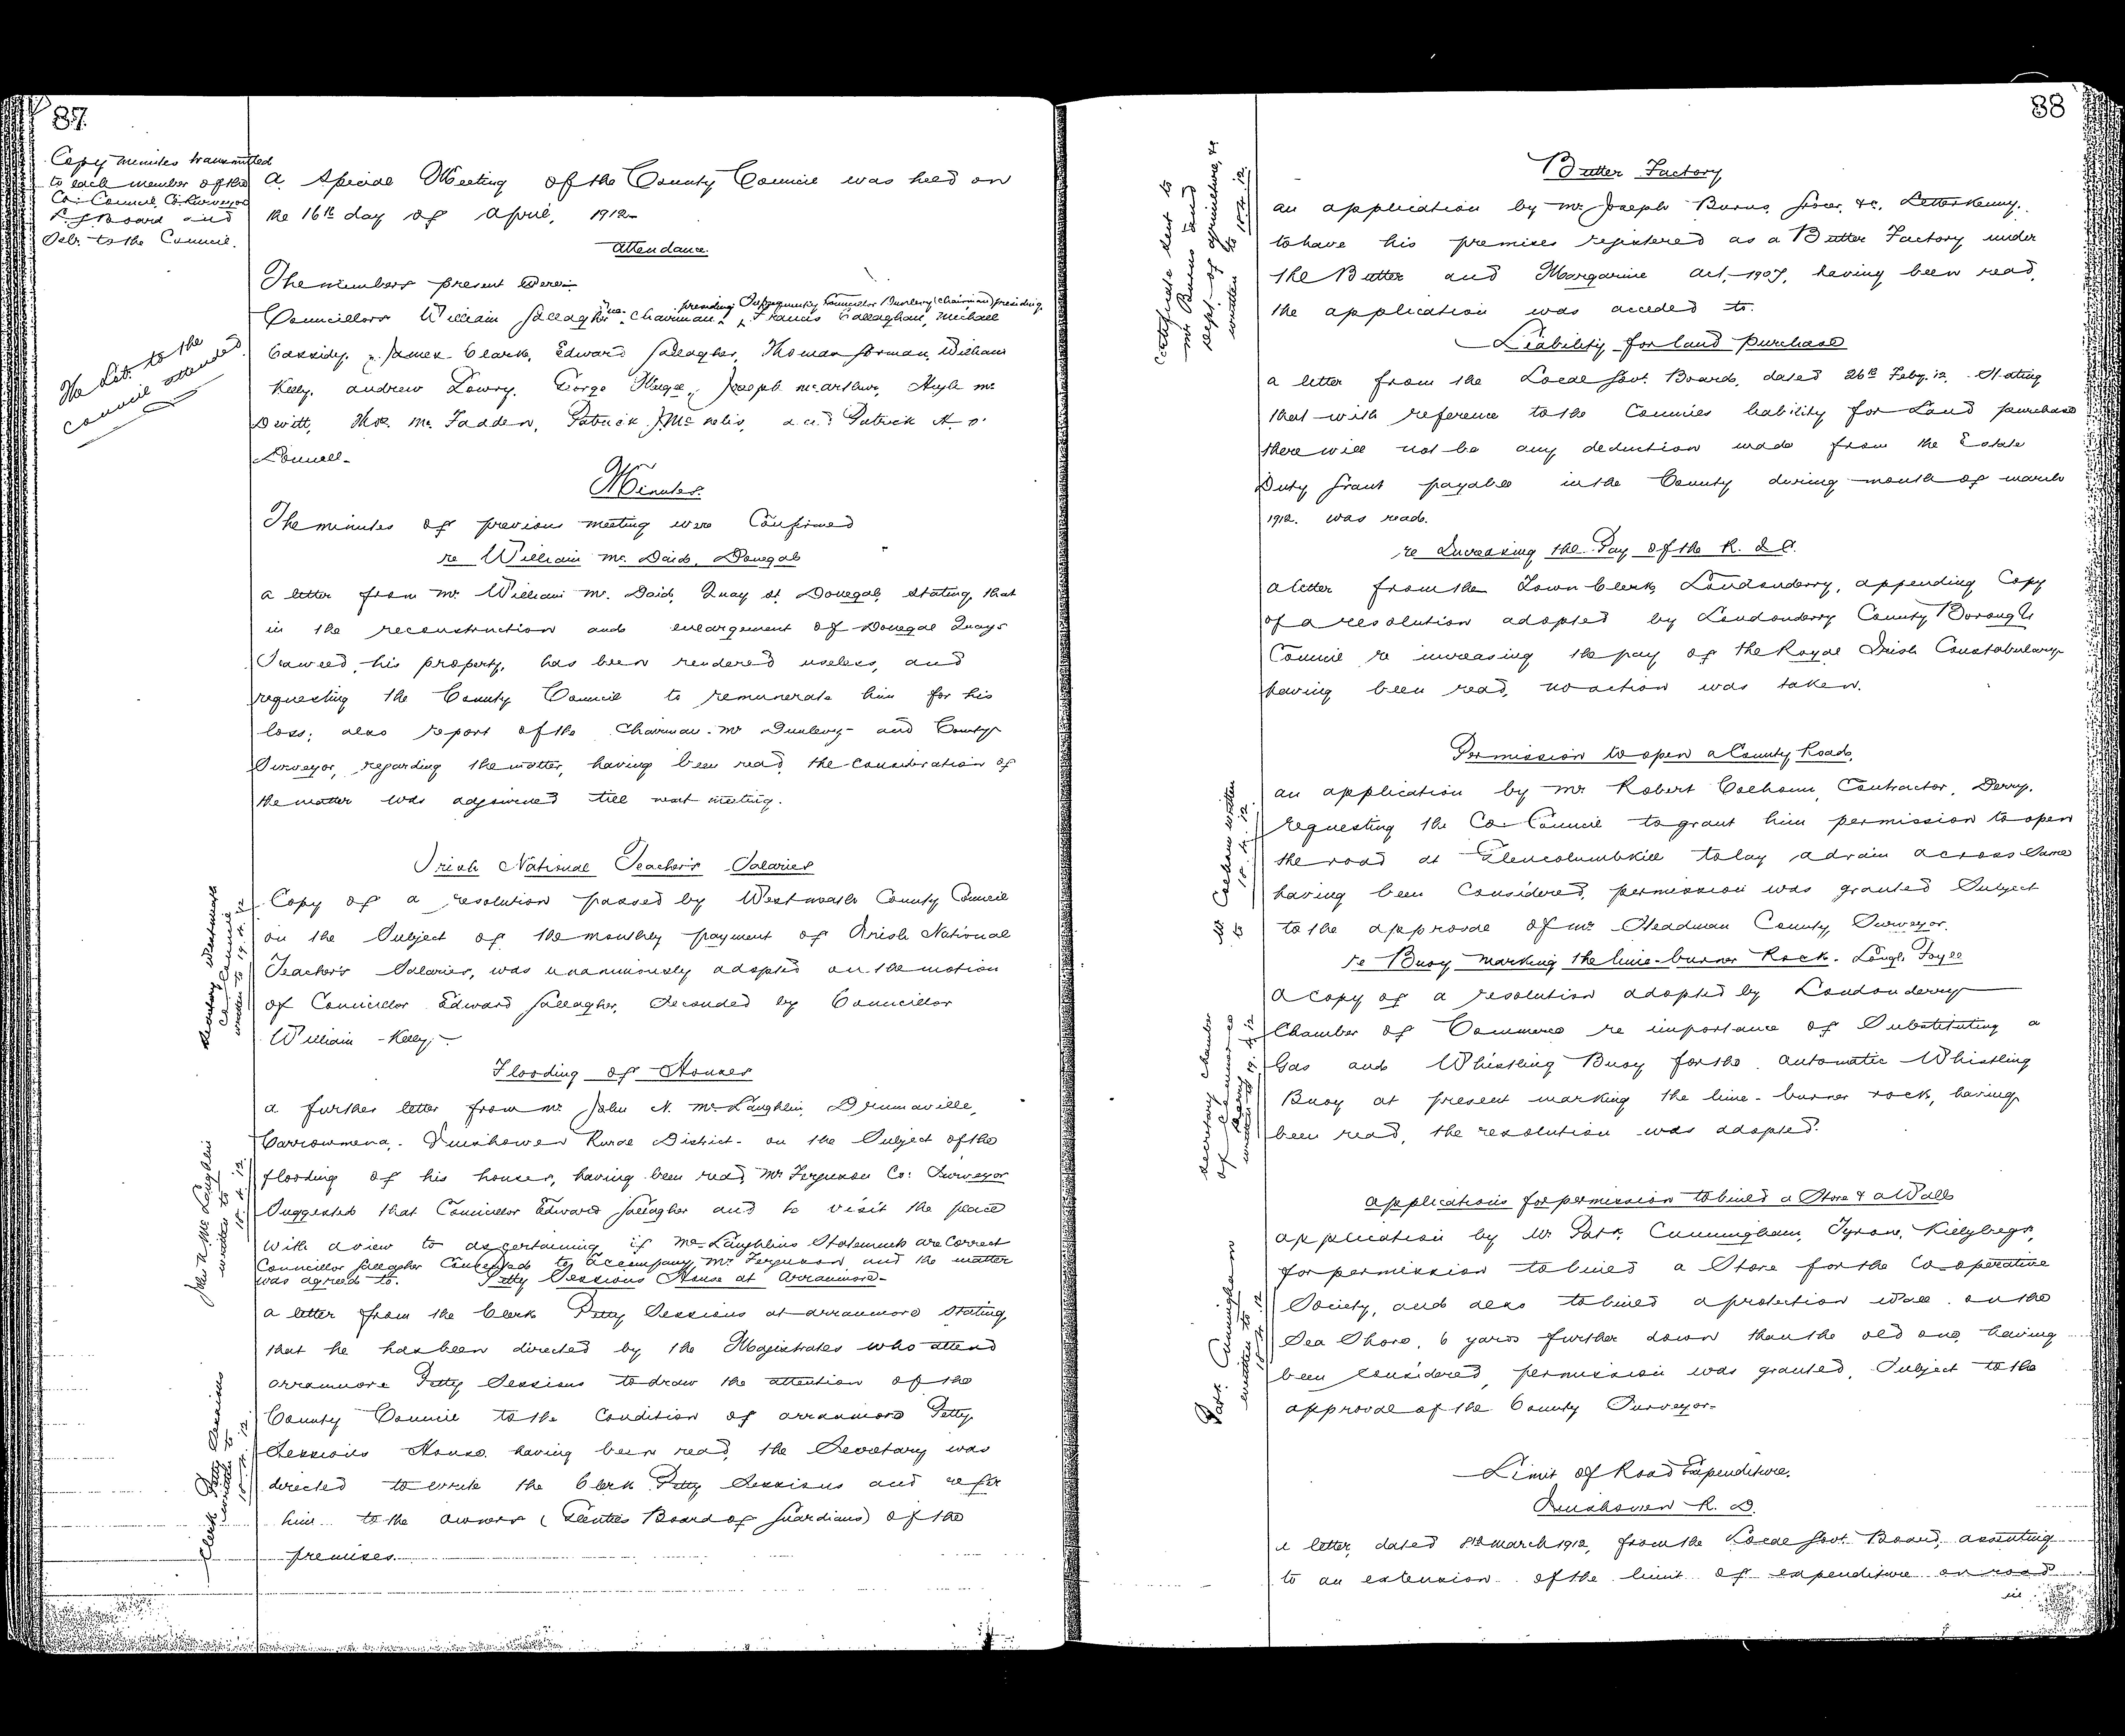 87
Copy minutes transmitted
to each member of the
Co: Council, Co. Surveyor
L. G. Board and
Solr. to the Council.
The Solr. to the
Council attended
A Special Meeting of the County Council was held on
the 16th day of April, 1912
Attendance.
The members present were:-
presiding Subsequently Councillor Dunlevy (Chairman) presiding
Councillors William Gallagher Vice-Chairman, Francis Callaghan, Michael
Cassidy, James Clark, Edward Gallagher, Thomas Gorman, William
Kelly, Andrew Lowry, George Magee, Joseph McArthur, Hugh Mc
Devitt, Thos. Mc Fadden, Patrick J. Mc Nelis, and Patrick A. O'
Donnell.
Minutes.
The minutes of previous meeting were Confirmed
re William Mc. Daid, Donegal
a letter from Mr William Mc. Daid, Quay St. Donegal, stating that
in the reconstruction and enlargement of Donegal Quays
Seaweed, his property, has been rendered useless, and
requesting the County Council to remunerate him for his
loss; also report of the Chairman Mr Dunlevy and County
Surveyor, regarding the matter, having been read, the consideration of
the matter was adjourned till next meeting.
Irish National Teacher's Salaries
Secretary Westmeath
Co. Council
written to 19. 4. 12
Copy of a resolution passed by Westmeath County Council
on the Subject of the monthly payment of Irish National
Teacher's Salaries, was unanimously adopted on the motion
of Councillor Edward Gallagher, Seconded by Councillor
William Kelly.
Flooding of Houses
John N. Mc Laughlin
written to
18. 4. 12
a further letter from Mr John N. McLaughlin, Drumaville,
Carrowmena, Innishowen Rural District on the Subject of the
flooding of his houses, having been read, Mr Ferguson Co: Surveyor
Suggested that Councillor Edward Gallagher and he visit the place
with a view to ascertaining if McLaughlins Statements are correct
Councillor Gallagher Consented to accompany Mr Ferguson, and the matter
was agreed to.
Petty Sessions House at Arranmore
Clerk Petty Sessions
written to
18. 4. 12
a letter from the Clerk Petty Sessions at Arranmore stating
that he has been directed by the Magistrates who attend
Arranmore Petty Sessions to draw the attention of the
County Council to the Condition of Arranmore Petty
Sessions House having been read, the Secretary was
directed to write the Clerk Petty Sessions and refer
him to the owners (Glenties Board of Guardians) of the
premises.
88
Butter Factory
Certificate sent to
Mr Burns and
Dept. of Agriculture, &c
written to 18. 4. 12
an application by Mr Joseph Burns, Grocer, &c, Letterkenny,
to have his premises registered as a Butter Factory under
the Butter and Margarine Act, 1907, having been read,
the application was acceded to.
Liability for land purchase
a letter from the Local Govt. Board, dated 26th Feby. 12, Stating
that with reference to the Counties liability for Land purchase
there will not be any deduction made from the Estate
Duty Grant payable in the County during month of March
1912. was read.
re Increasing the Pay of the R. I. C.
a letter from the Town Clerk, Londonderry, appending Copy
of a resolution adopted by Londonderry County Borough
Council re increasing the pay of the Royal Irish Constabulary
having been read, no action was taken.
Permission to open a County Road,
Mr Colhoun written
to 18. 4. 12
an application by Mr Robert Colhoun, Contractor, Derry,
requesting the Co. Council to grant him permission to open
the road at Glencolumbkill to lay a drain across Same
having been Considered, permission was granted Subject
to the approval of Mr Steadman County Surveyor.
re Buoy marking the lime-burner Rock. Lough Foyle
Secretary Chamber
of Commerce
Derry
written to 19. 4. 12
A Copy of a resolution adopted by Londonderry
Chamber of Commerce re importance of Substituting a
Gas and Whistling Buoy for the automatic Whistling
Buoy at present marking the lime-burner rock, having
been read, the resolution was adopted.
Applications for permission to build a Store & a Wall
Patk. Cunningham
written to
18. 4. 12
application by Mr Patk. Cunningham, Tyrone, Killybegs,
for permission to build a Store for the Co-operative
Society, and also to build a protection wall on the
Sea Shore, 6 yards further down than the old one, having
been considered, permission was granted, Subject to the
approval of the County Surveyor.
Limit of Road Expenditure.
Innishowen R. D.
a letter, dated 8th March 1912, from the Local Govt. Board, assenting
to an extension of the limit of expenditure on road
in